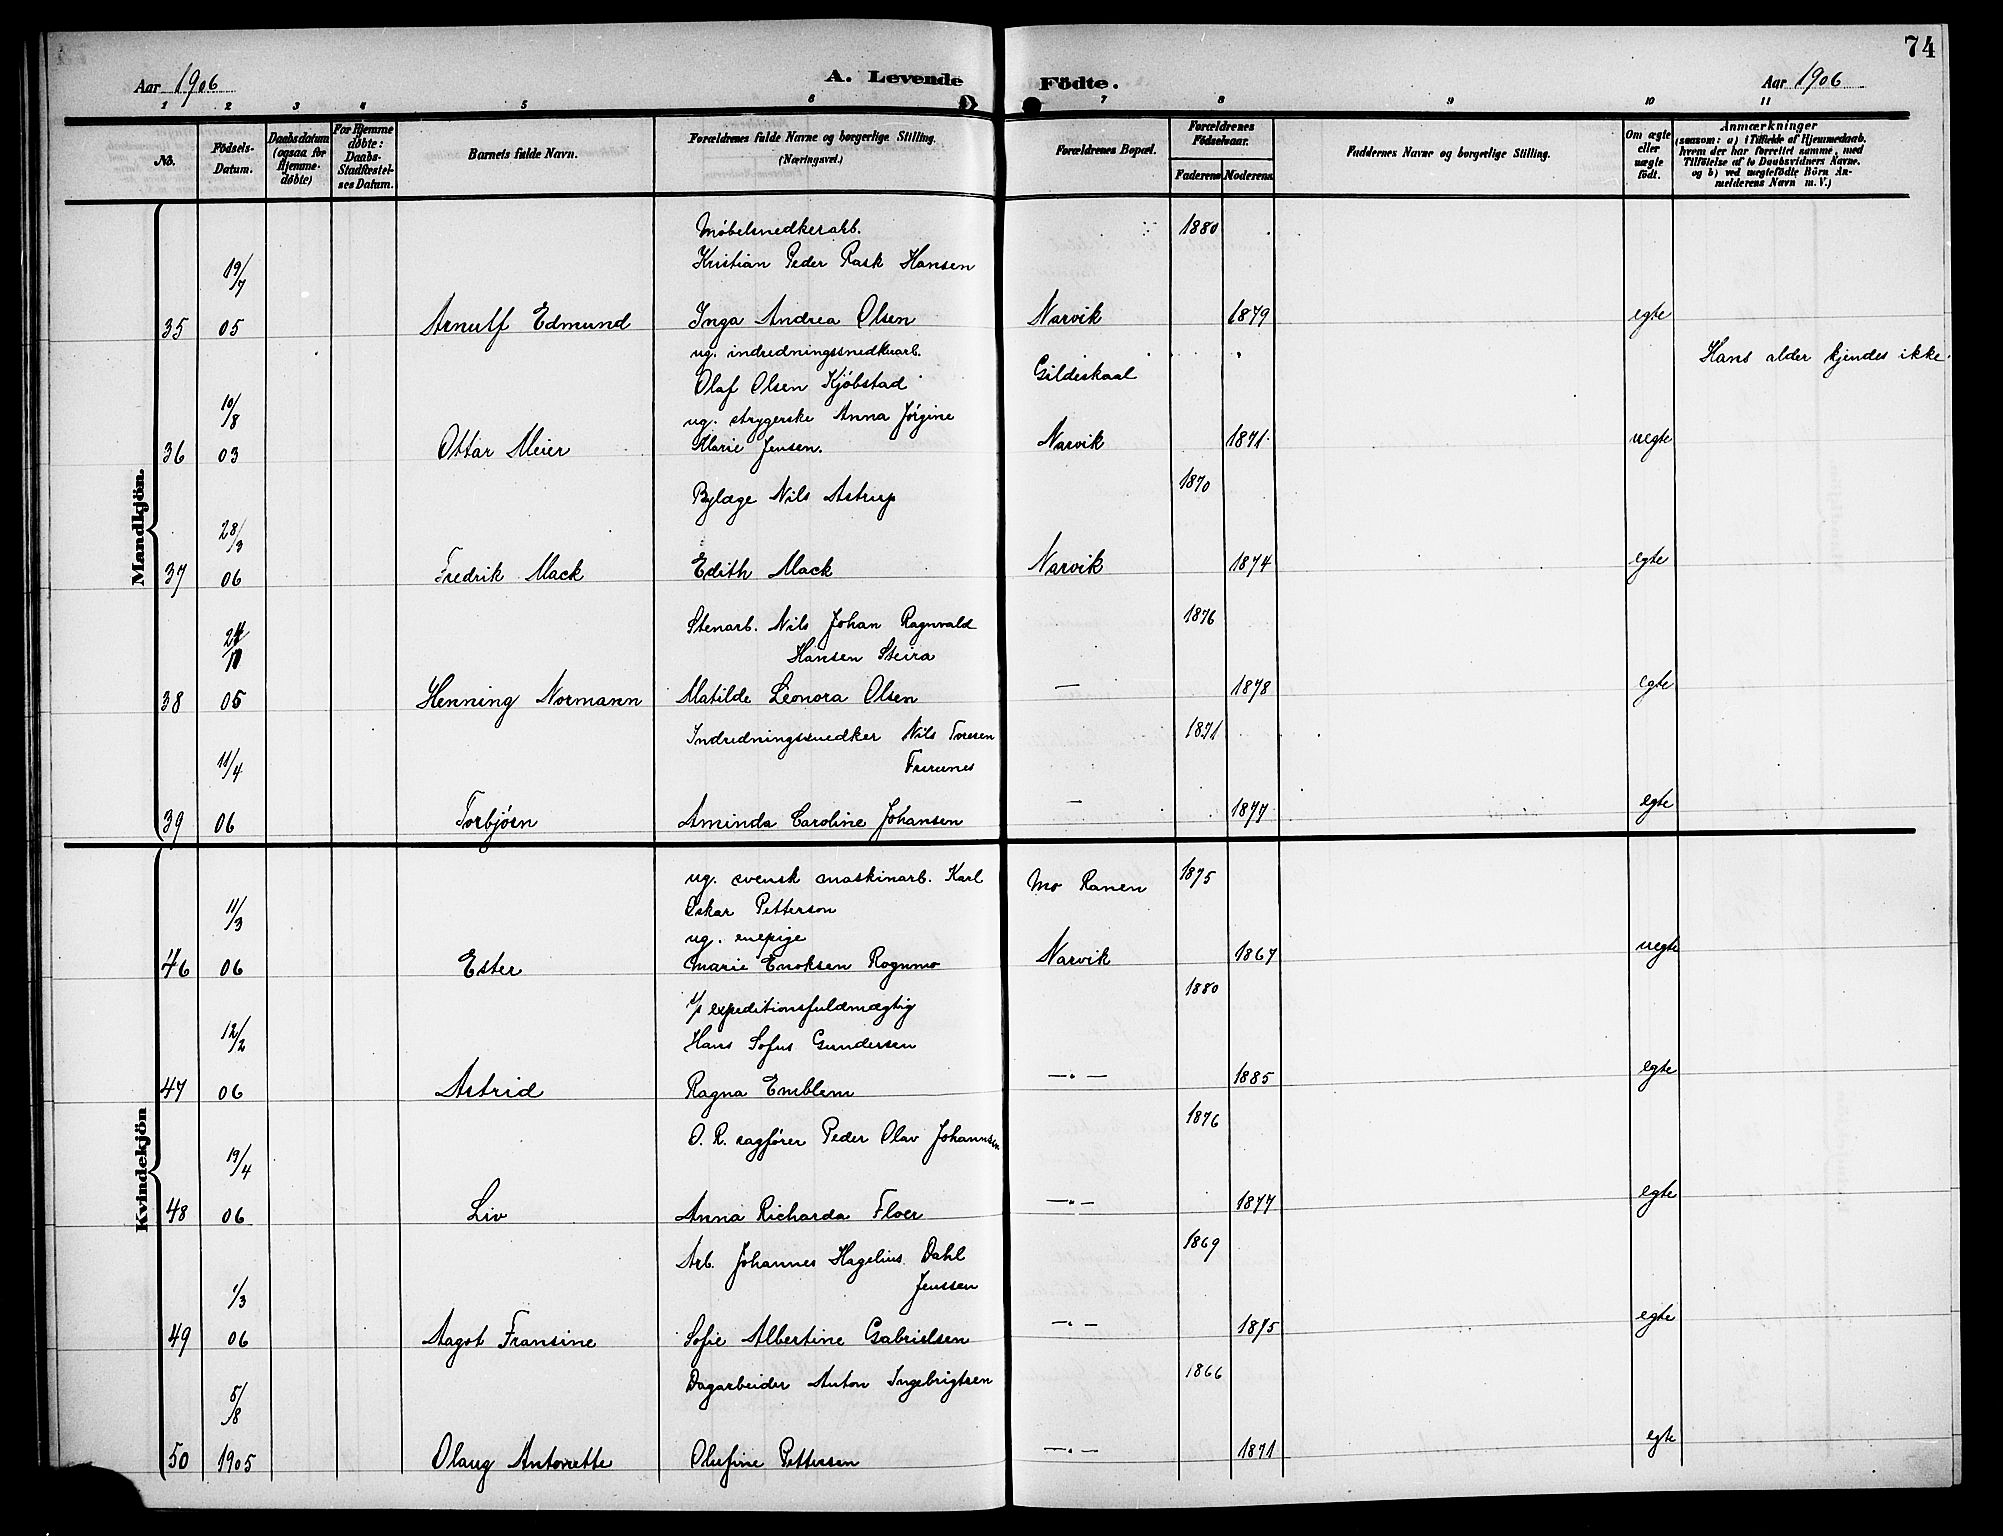 74
Aar 1906
A. Levende Födte.
Aar 1906
1 2 3 4 5 6 7 8 9 10 11
No.
Födsels-Datum.
Daabsdatum (ogsaa for Hjemme-døbte)
For Hjemme døbte: Daabs-Stadfæstelses Datum.
Barnets fulde Navn.
Forældrenes fulde Navne og borgerlige Stilling. (Næringsvei.)
Forældrenes Bopæl.
Forældrenes Födselsaar.
Faderens Moderens
Faddernes Navne og borgerlige Stilling.
Om ægte eller uægte födt.
Anmærkninger
(saasom: a) i Tilfælde af Hjemmedaab,
hvem der har forrettet samme, med
Tilföielse af to Daabsvidners Navne.
og b) ved uægtefödte Börn An-
melderens Navn m. V.)
Mandkjön.
Møbelsnedkerarb. 1880
19/7 Kristian Peder Rask Hansen
35 05 Arnulf Edmund Inga Andrea Olsen Narvik 1879 egte
ug. indredningssnedkerarb. Hans alder kjendes ikke.
Olaf Olsen Kjøbstad Gildeskaal
10/8 ug. strygerske Anna Jørgine
36 03 Ottar Meier Marie Jensen. Narvik 1871 uegte
Bylæge Nils Astrup 1870
28/3
37 06 Fredrik Mack Edith Mack Narvik 1874 egte
Stenarb. Nils Johan Ragnvald 1876
Hansen Steira
38 05 Henning Normann Matilde Leonora Olsen — 1878 egte
Indredningssnedker Nils Toresen 1871
11/4 Furunes
39 06 Torbjørn Aminda Caroline Johansen — 1877 egte
Kvindekjön
ug. svensk maskinarb. Karl Mo Ranen 1875
11/3 Oskar Petterson
ug. enepige
46 06 Ester Marie Enoksen Rognmo Narvik 1867 uegte
expeditionsfuldmægtig 1880
12/2 Hans Sofus Gundersen
47 06 Astrid Ragna Emblem —"— 1885 egte
O. R. sagfører Peder Olav Johannsen 1876
19/4
48 06 Liv Anna Richarda Floer —"— 1877 egte
Arb. Johannes Hagelius Dahl 1869
1/3 Jenssen
49 06 Aagot Fransine Sofie Albertine Gabrielsen —"— 1875 egte
Dagarbeider Anton Ingebrigtsen 1866
5/8
50 1905 Olaug Antonette Olufine Pettersen —"— 1871 egte